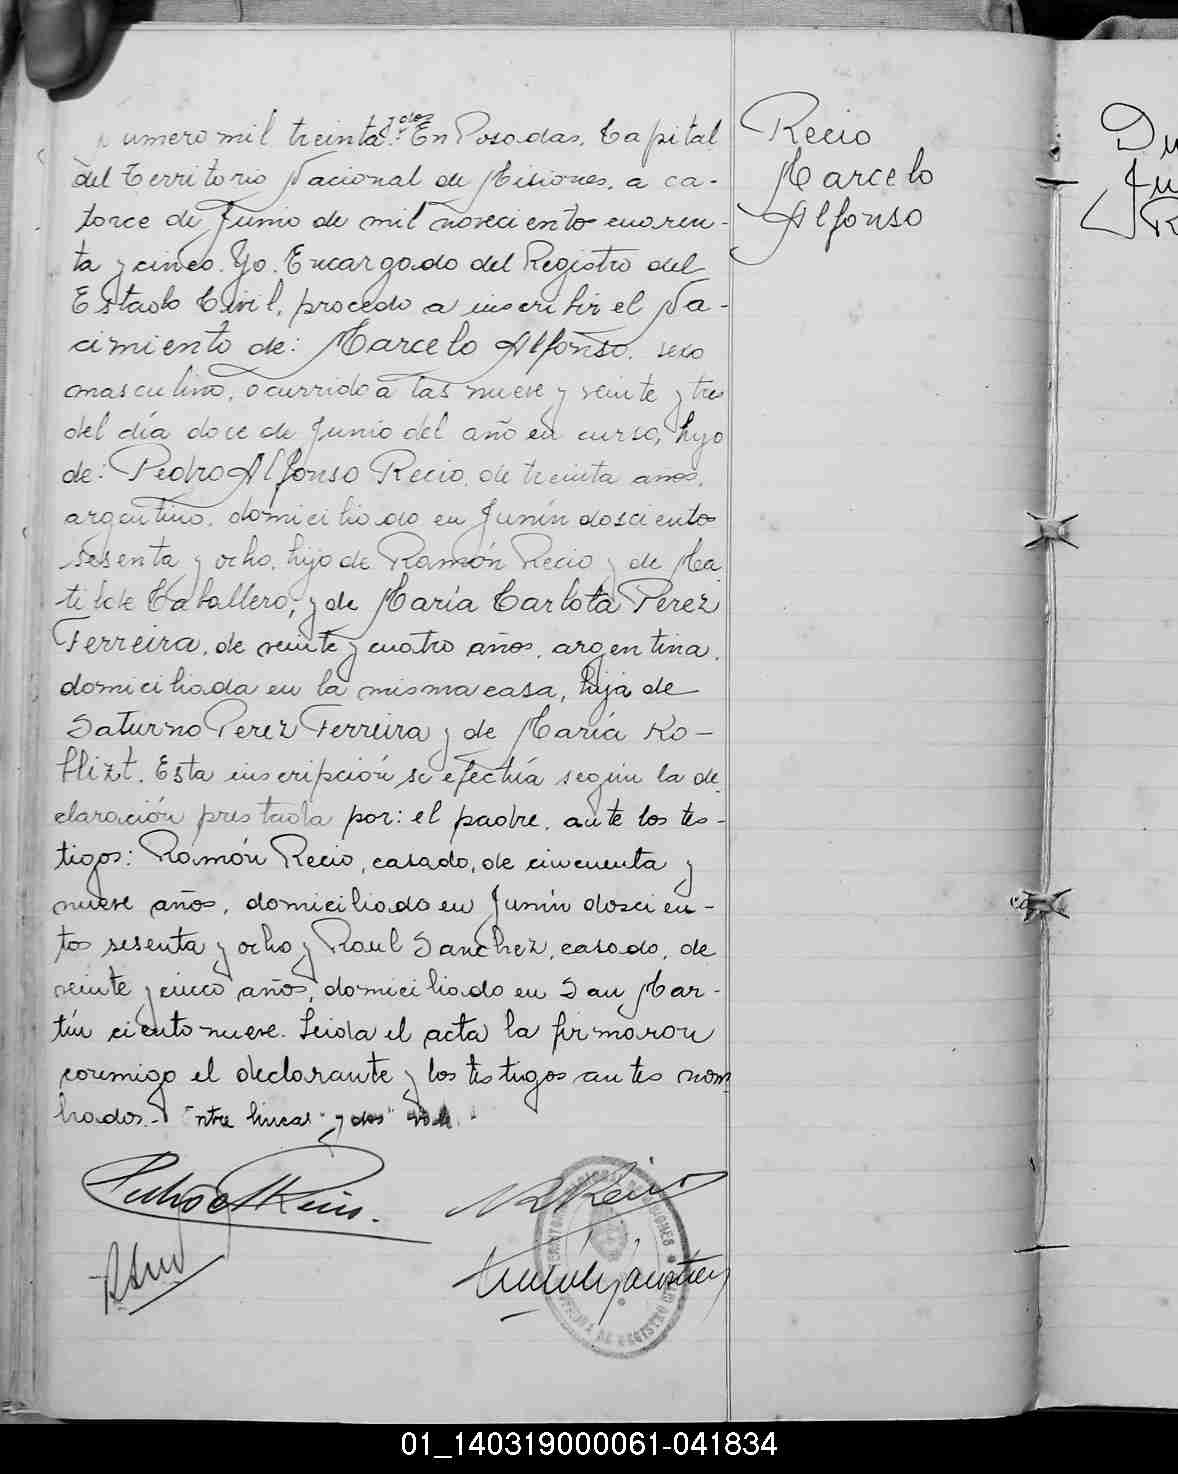 Numero mil treinta y dos. En Posadas, Capital
del Territorio Nacional de Misiones, a ca-
torce de Junio de mil noveciento cuaren-
ta y cinco. Yo. Encargado del Registro del
Estado Civil, procedo a inscribir el Na-
cimiento de: Marcelo Alfonso. sexo
masculino, ocurrido a las nueve y veinte y tres
del día doce de Junio del año en curso, hijo
de: Pedro Alfonso Recio, de treinta años,
argentino, domiciliado en Junín doscientos
sesenta y ocho, hijo de Ramón Recio y de Ma
tilde Caballero; y de María Carlota Perez
Ferreira, de veinte y cuatro años, argentina,
domiciliada en la misma casa, hija de
Saturno Perez Ferreira y de María Ko-
blizt. Esta inscripción se efectúa según la de
claración prestada por: el padre, ante los tes-
tigos: Ramón Recio, casado, de cincuenta y
nueve años, domiciliado en Junín doscien-
tos sesenta y ocho y Raul Sanchez, casado, de
veinte y cinco años, domiciliado en San Mar-
tín ciento nueve. Leida el acta la firmaron
conmigo el declarante y los testigos antes nom
brados.- Entre lineas "y dos" vale.
Recio
Marcelo
Alfonso
Du
Ju
R
01_140319000061-041834